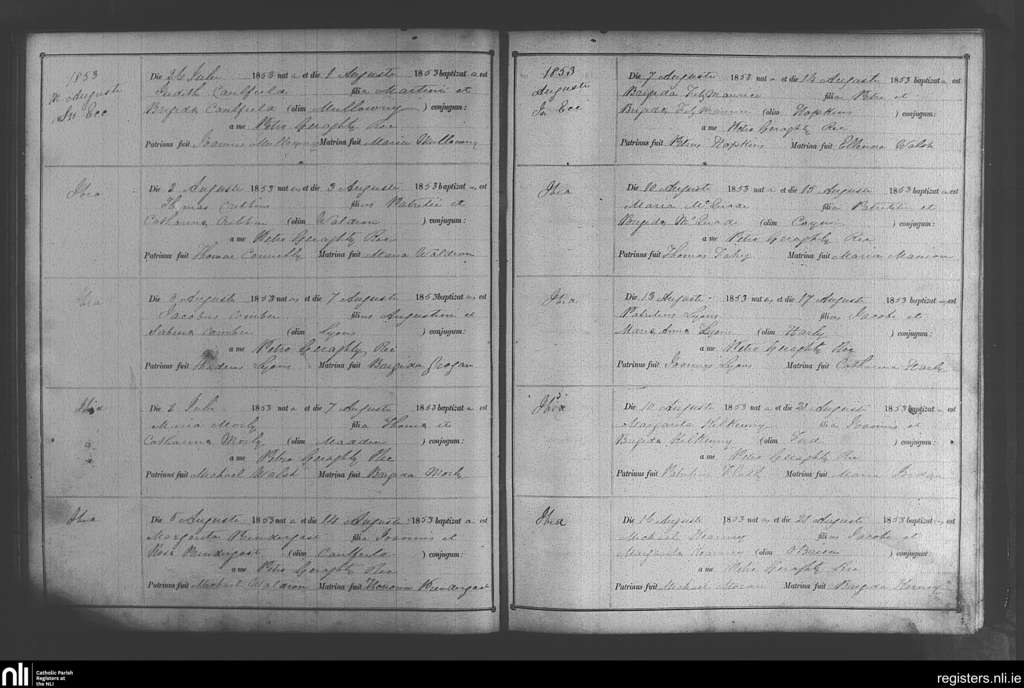 1853
Augusti
In Ecc
Die 26 July 1853 nata et die 1 Augusti 1853 baptizata est
Judith Caulfield filia Martini et
Brigida Caulfield (olim Mullowny) conjugum:
a me Petro Geraghty Rec
Patrinus fuit Joannes Mullowny Matrina fuit Maria Mullowny
Ibia
Die 2 Augusti 1853 natus et die 3 Augusti 1853 baptizatus est
Thomas Cribbin filius Patritii et
Catharina Cribbin (olim Waldron) conjugum:
a me Petro Geraghty Rec
Patrinus fuit Thomas Connelly Matrina fuit Maria Waldron
Ibia
Die 3 Augusti 1853 natus et die 7 Augusti 1853 baptizatus est
Jacobus Comber filius Augustini et
Sabina Comber (olim Lyons) conjugum:
a me Petro Geraghty Rec
Patrinus fuit Thadeus Lyons Matrina fuit Brigida Grogan
Ibia
Die 2 July 1853 nata et die 7 Augusti 1853 baptizata est
Maria Morly filia Thoma et
Catharina Morly (olim Madden) conjugum:
a me Petro Geraghty Rec
Patrinus fuit Michael Walsh Matrina fuit Brigida Morly
Ibia
Die 5 Augusti 1853 nata et die 14 Augusti 1853 baptizata est
Margarita Prendergast filia Joannis et
Rosa Prendergast (olim Caulfield) conjugum:
a me Petro Geraghty Rec
Patrinus fuit Michael Waldron Matrina fuit Honoria Prendergast
1853
Augusti
In Ecc
Die 7 Augusti 1853 nata et die 14 Augusti 1853 baptizata est
Brigida FitzMaurice filia Petri et
Brigida FitzMaurice (olim Hopkins) conjugum:
a me Petro Geraghty Rec
Patrinus fuit Petrus Hopkins Matrina fuit Ellenna Walsh
Ibia
Die 10 Augusti 1853 nata et die 15 Augusti 1853 baptizata est
Maria McQuade filia Patritii et
Brigida McQuade (olim Coyne) conjugum:
a me Petro Geraghty Rec
Patrinus fuit Thomas Fahy Matrina fuit Maria Manion
Ibia
Die 13 Augusti 1853 natus et die 17 Augusti 1853 baptizatus est
Patritius Lyons filius Jacobi et
Maria Anna Lyons (olim Harly) conjugum:
a me Petro Geraghty Rec
Patrinus fuit Joannes Lyons Matrina fuit Catharina Harly
Ibia
Die 10 Augusti 1853 nata et die 21 Augusti 1853 baptizata est
Margarita Kilkenny filia Joannis et
Brigida Kilkenny (olim Ford) conjugum:
a me Petro Geraghty Rec
Patrinus fuit Patritius Matrina fuit Maria
Ibia
Die 16 Augusti 1853 natus et die 21 Augusti 1853 baptizatus est
Michael Kearney filius Jacobi et
Margarita Kearney (olim O'Brien) conjugum:
a me Petro Geraghty Rec
Patrinus fuit Michael Moran Matrina fuit Brigida
nli Catholic Parish
Registers at
the NLI
registers.nli.ie